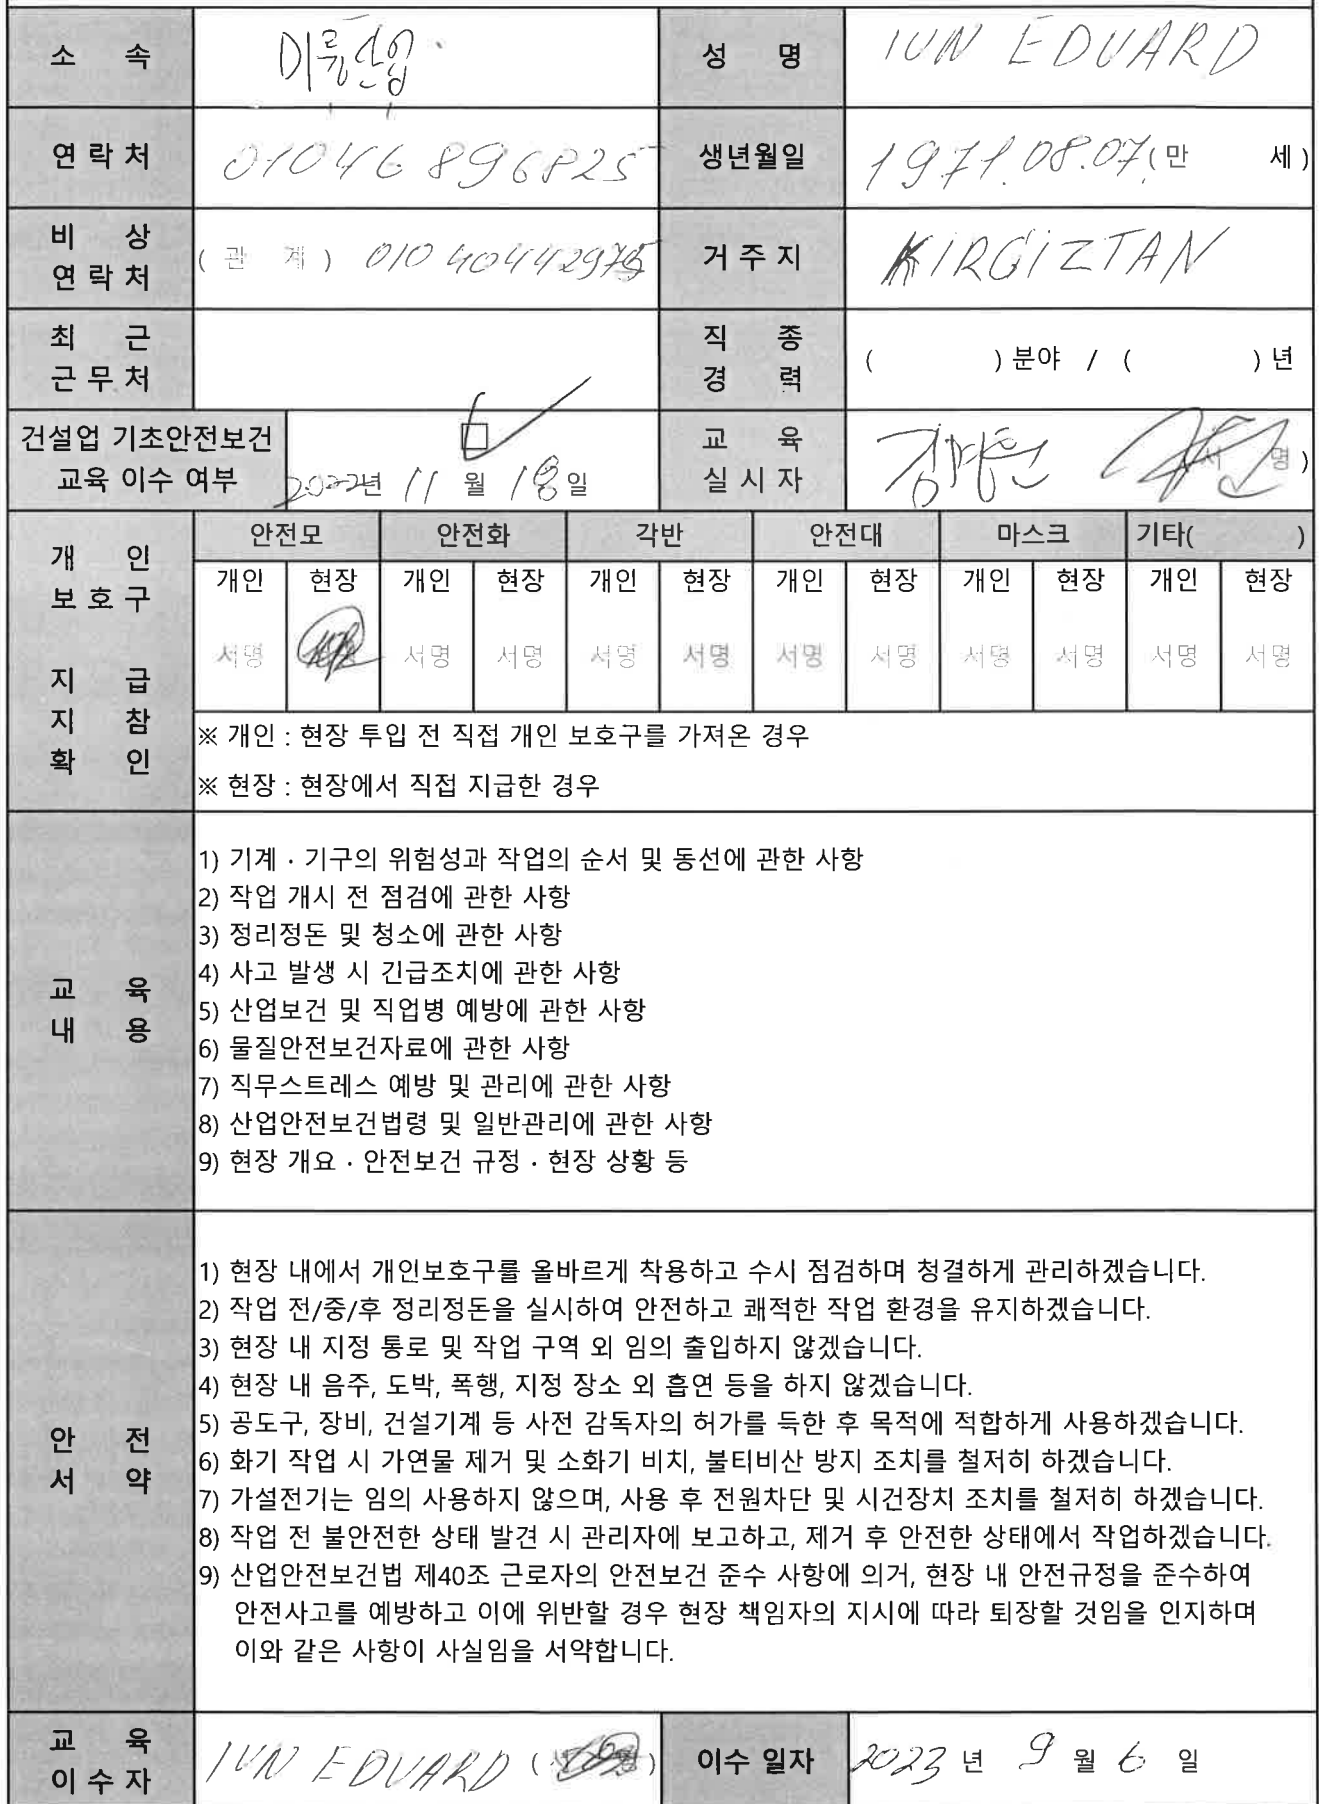 소 속 미륭산업 성 명 IUN EDUARD
연 락 처 01046896825 생년월일 1971.08.07.(만 세)
비 상 연 락 처 (관 계) 010 40442975 거 주 지 KIRGIZTAN
최 근 근 무 처 직 종 경 력 ( ) 분야 / ( ) 년
건설업 기초안전보건 교 육
교육 이수 여부 2022년 11 월 18일 실 시 자 서 명)
개 인 보 호 구 지 급 지 참 확 인
안전모 안전화 각반 안전대 마스크 기타( )
개인 현장 개인 현장 개인 현장 개인 현장 개인 현장 개인 현장
서명 서명 서명 서명 서명 서명 서명 서명 서명 서명 서명
※ 개인 : 현장 투입 전 직접 개인 보호구를 가져온 경우
※ 현장 : 현장에서 직접 지급한 경우
교 육 내 용
1) 기계 · 기구의 위험성과 작업의 순서 및 동선에 관한 사항
2) 작업 개시 전 점검에 관한 사항
3) 정리정돈 및 청소에 관한 사항
4) 사고 발생 시 긴급조치에 관한 사항
5) 산업보건 및 직업병 예방에 관한 사항
6) 물질안전보건자료에 관한 사항
7) 직무스트레스 예방 및 관리에 관한 사항
8) 산업안전보건법령 및 일반관리에 관한 사항
9) 현장 개요 · 안전보건 규정 · 현장 상황 등
안 전 서 약
1) 현장 내에서 개인보호구를 올바르게 착용하고 수시 점검하며 청결하게 관리하겠습니다.
2) 작업 전/중/후 정리정돈을 실시하여 안전하고 쾌적한 작업 환경을 유지하겠습니다.
3) 현장 내 지정 통로 및 작업 구역 외 임의 출입하지 않겠습니다.
4) 현장 내 음주, 도박, 폭행, 지정 장소 외 흡연 등을 하지 않겠습니다.
5) 공도구, 장비, 건설기계 등 사전 감독자의 허가를 득한 후 목적에 적합하게 사용하겠습니다.
6) 화기 작업 시 가연물 제거 및 소화기 비치, 불티비산 방지 조치를 철저히 하겠습니다.
7) 가설전기는 임의 사용하지 않으며, 사용 후 전원차단 및 시건장치 조치를 철저히 하겠습니다.
8) 작업 전 불안전한 상태 발견 시 관리자에 보고하고, 제거 후 안전한 상태에서 작업하겠습니다.
9) 산업안전보건법 제40조 근로자의 안전보건 준수 사항에 의거, 현장 내 안전규정을 준수하여
안전사고를 예방하고 이에 위반할 경우 현장 책임자의 지시에 따라 퇴장할 것임을 인지하며
이와 같은 사항이 사실임을 서약합니다.
교 육 이 수 자 IUN EDUARD ( ) 이수 일자 2023 년 9 월 6 일